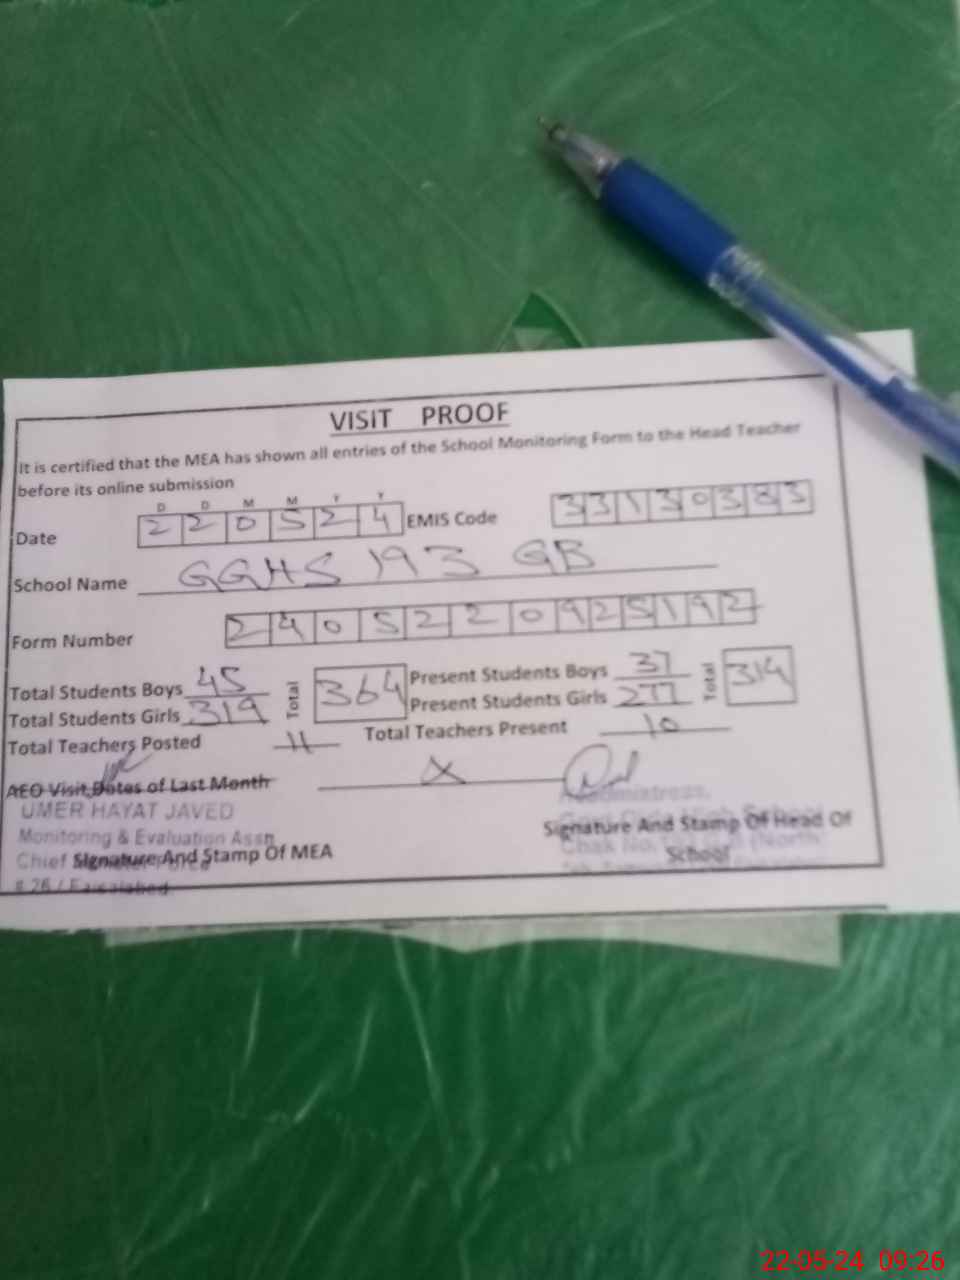 VISIT PROOF
It is certified that the MEA has shown all entries of the School Monitoring Form to the Head Teacher
before its online submission
D D M M Y Y
Date 2 2 0 5 2 4 EMIS Code 3 3 1 3 0 3 8 3
School Name GGHS 193 GB
Form Number 2 4 0 5 2 2 0 9 2 5 1 9 2
Total Students Boys 45 Total 364 Present Students Boys 37 Total 314
Total Students Girls 319 Present Students Girls 277
Total Teachers Posted 11 Total Teachers Present 10
AEO Visit Dates of Last Month X
UMER HAYAT JAVED
Monitoring & Evaluation Asstt
Chief
Signature And Stamp Of MEA
Headmistress,
High School
Chak No.
(North)
Signature And Stamp Of Head Of
School
22-05-24 09:26